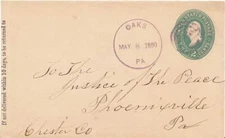 If not delivered within 10 days, to be returned to
OAKS
MAY 6 1890
PA
To The
Justice of The Peace
Phoenixville
Chester Co
Pa